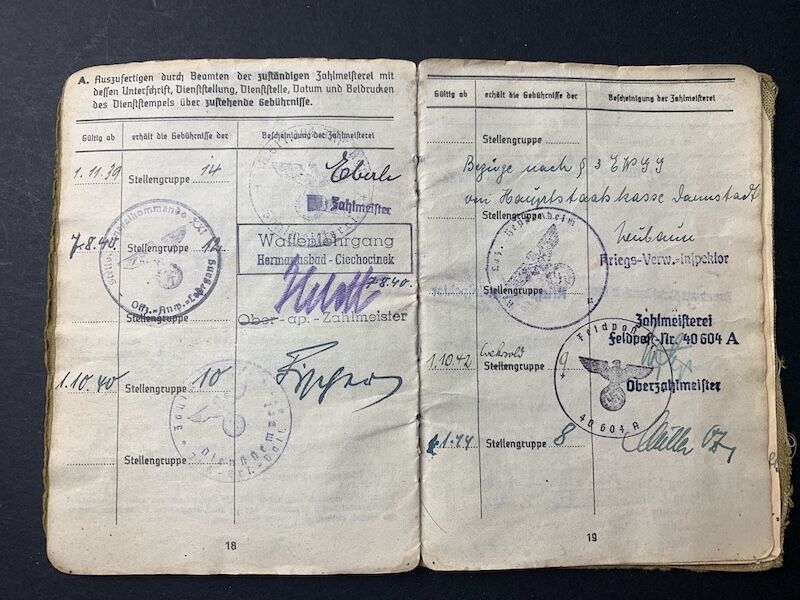 A. Auszufertigen durch Beamten der zuständigen Zahlmeisterei mit
dessen Unterschrift, Dienststellung, Dienststelle, Datum und Beidrucken
des Dienststempels über zustehende Gebührnisse.
Gültig ab erhält die Gebührnisse der Bescheinigung der Zahlmeisterei
1.11.39 Stellengruppe 14 Eberle
Zahlmeister
7.8.40 Stellengruppe 12 Waffenlehrgang
Hermannsbad - Ciechocinek
7.8.40.
Offz.-Anw.-Lehrgang
Stellengruppe Ober-ap.-Zahlmeister
1.10.40 Stellengruppe 10 Fischer
Stellengruppe
18
Gültig ab erhält die Gebührnisse der Bescheinigung der Zahlmeisterei
Stellengruppe
Bezüge nach § 3 EWGG
von Hauptstaatskasse Darmstadt
Stellengruppe
Res. Laz. Heppenheim
Neubaum
Kriegs-Verw.-Inspektor
Stellengruppe
Zahlmeisterei
Feldpost-Nr. 40604 A
1.10.42 Stellengruppe 9
Oberzahlmeister
Feldpost
40604 A
Stellengruppe 8
19